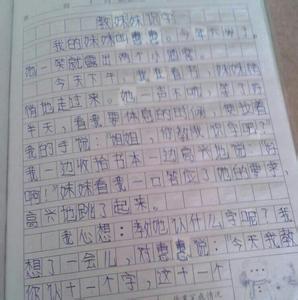 教妹妹识字
我的妹妹叫曹曹。今年六岁了。
她一笑就露出两个小酒窝。
今天下午，我在看书，妹妹悄
悄地走过来。她一声不吭，等了好
半天，看我要休息的时候，突拉着
我的手说："姐姐，你教我识字吧？"
我一边收拾书本一边高兴地说："好
啊！"妹妹看我一口答应了她的要求，
高兴地跳了起来。
我心想：教她认什么字呢？我
想了一会儿，对曹曹说："今天我教
你认十一个字，这十一个